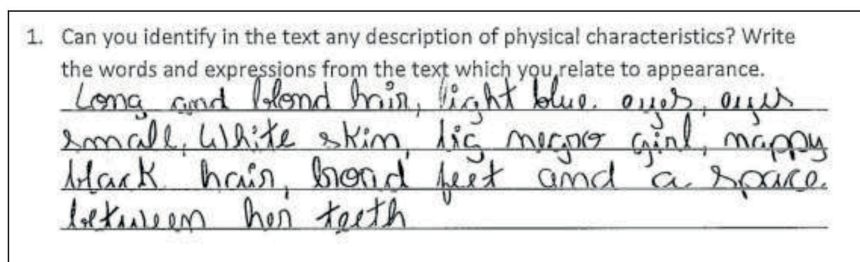 1. Can you identify in the text any description of physical characteristics? Write
the words and expressions from the text which you relate to appearance.
Long and blond hair, light blue. eyes, eyes
small, White skin, big negro girl, nappy
black hair, broad feet and a space
between her teeth